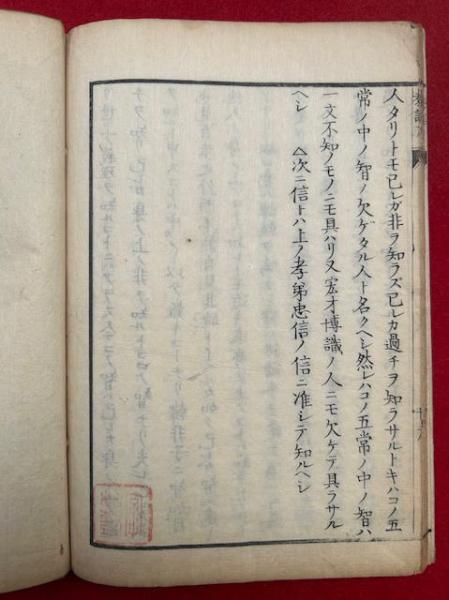 人タリトモ已レガ非ヲ知ラズ已レカ過チヲ知ラサルトキハコノ五
常ノ中ノ智ノ欠ゲタル人ト名クヘシ然レハコノ五常ノ中ノ智ハ
一文不知ノモノニモ具ハリ又宏才博識ノ人ニモ欠ケテ具ラサル
ヘシ △次ニ信トハ上ノ孝弟忠信ノ信ニ准シテ知ルヘシ